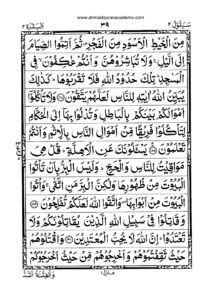 www.ahmadquranacademy.com
البقرة ٢
٣٩
سيقول ٢
مِنَ الْخَيْطِ الْاَسْوَدِ مِنَ الْفَجْرِ ثُمَّ اَتِمُّوا الصِّيَامَ
اِلَى الَّيْلِ وَلَا تُبَاشِرُوْهُنَّ وَاَنْتُمْ عٰكِفُوْنَ فِى
الْمَسٰجِدِ تِلْكَ حُدُوْدُ اللّٰهِ فَلَا تَقْرَبُوْهَا كَذٰلِكَ
يُبَيِّنُ اللّٰهُ اٰيٰتِهٖ لِلنَّاسِ لَعَلَّهُمْ يَتَّقُوْنَ وَلَا تَاْكُلُوْٓا
اَمْوَالَكُمْ بَيْنَكُمْ بِالْبَاطِلِ وَتُدْلُوْا بِهَآ اِلَى الْحُكَّامِ
لِتَاْكُلُوْا فَرِيْقًا مِّنْ اَمْوَالِ النَّاسِ بِالْاِثْمِ وَاَنْتُمْ
تَعْلَمُوْنَ يَسْـَٔلُوْنَكَ عَنِ الْاَهِلَّةِ قُلْ هِىَ
مَوَاقِيْتُ لِلنَّاسِ وَالْحَجِّ وَلَيْسَ الْبِرُّ بِاَنْ تَاْتُوا
الْبُيُوْتَ مِنْ ظُهُوْرِهَا وَلٰكِنَّ الْبِرَّ مَنِ اتَّقٰى وَاْتُوا
الْبُيُوْتَ مِنْ اَبْوَابِهَا وَاتَّقُوا اللّٰهَ لَعَلَّكُمْ تُفْلِحُوْنَ
وَقَاتِلُوْا فِىْ سَبِيْلِ اللّٰهِ الَّذِيْنَ يُقَاتِلُوْنَكُمْ وَلَا
تَعْتَدُوْا اِنَّ اللّٰهَ لَا يُحِبُّ الْمُعْتَدِيْنَ وَاقْتُلُوْهُمْ
حَيْثُ ثَقِفْتُمُوْهُمْ وَاَخْرِجُوْهُمْ مِّنْ حَيْثُ اَخْرَجُوْكُمْ
وَالْفِتْنَةُ اَشَدُّ